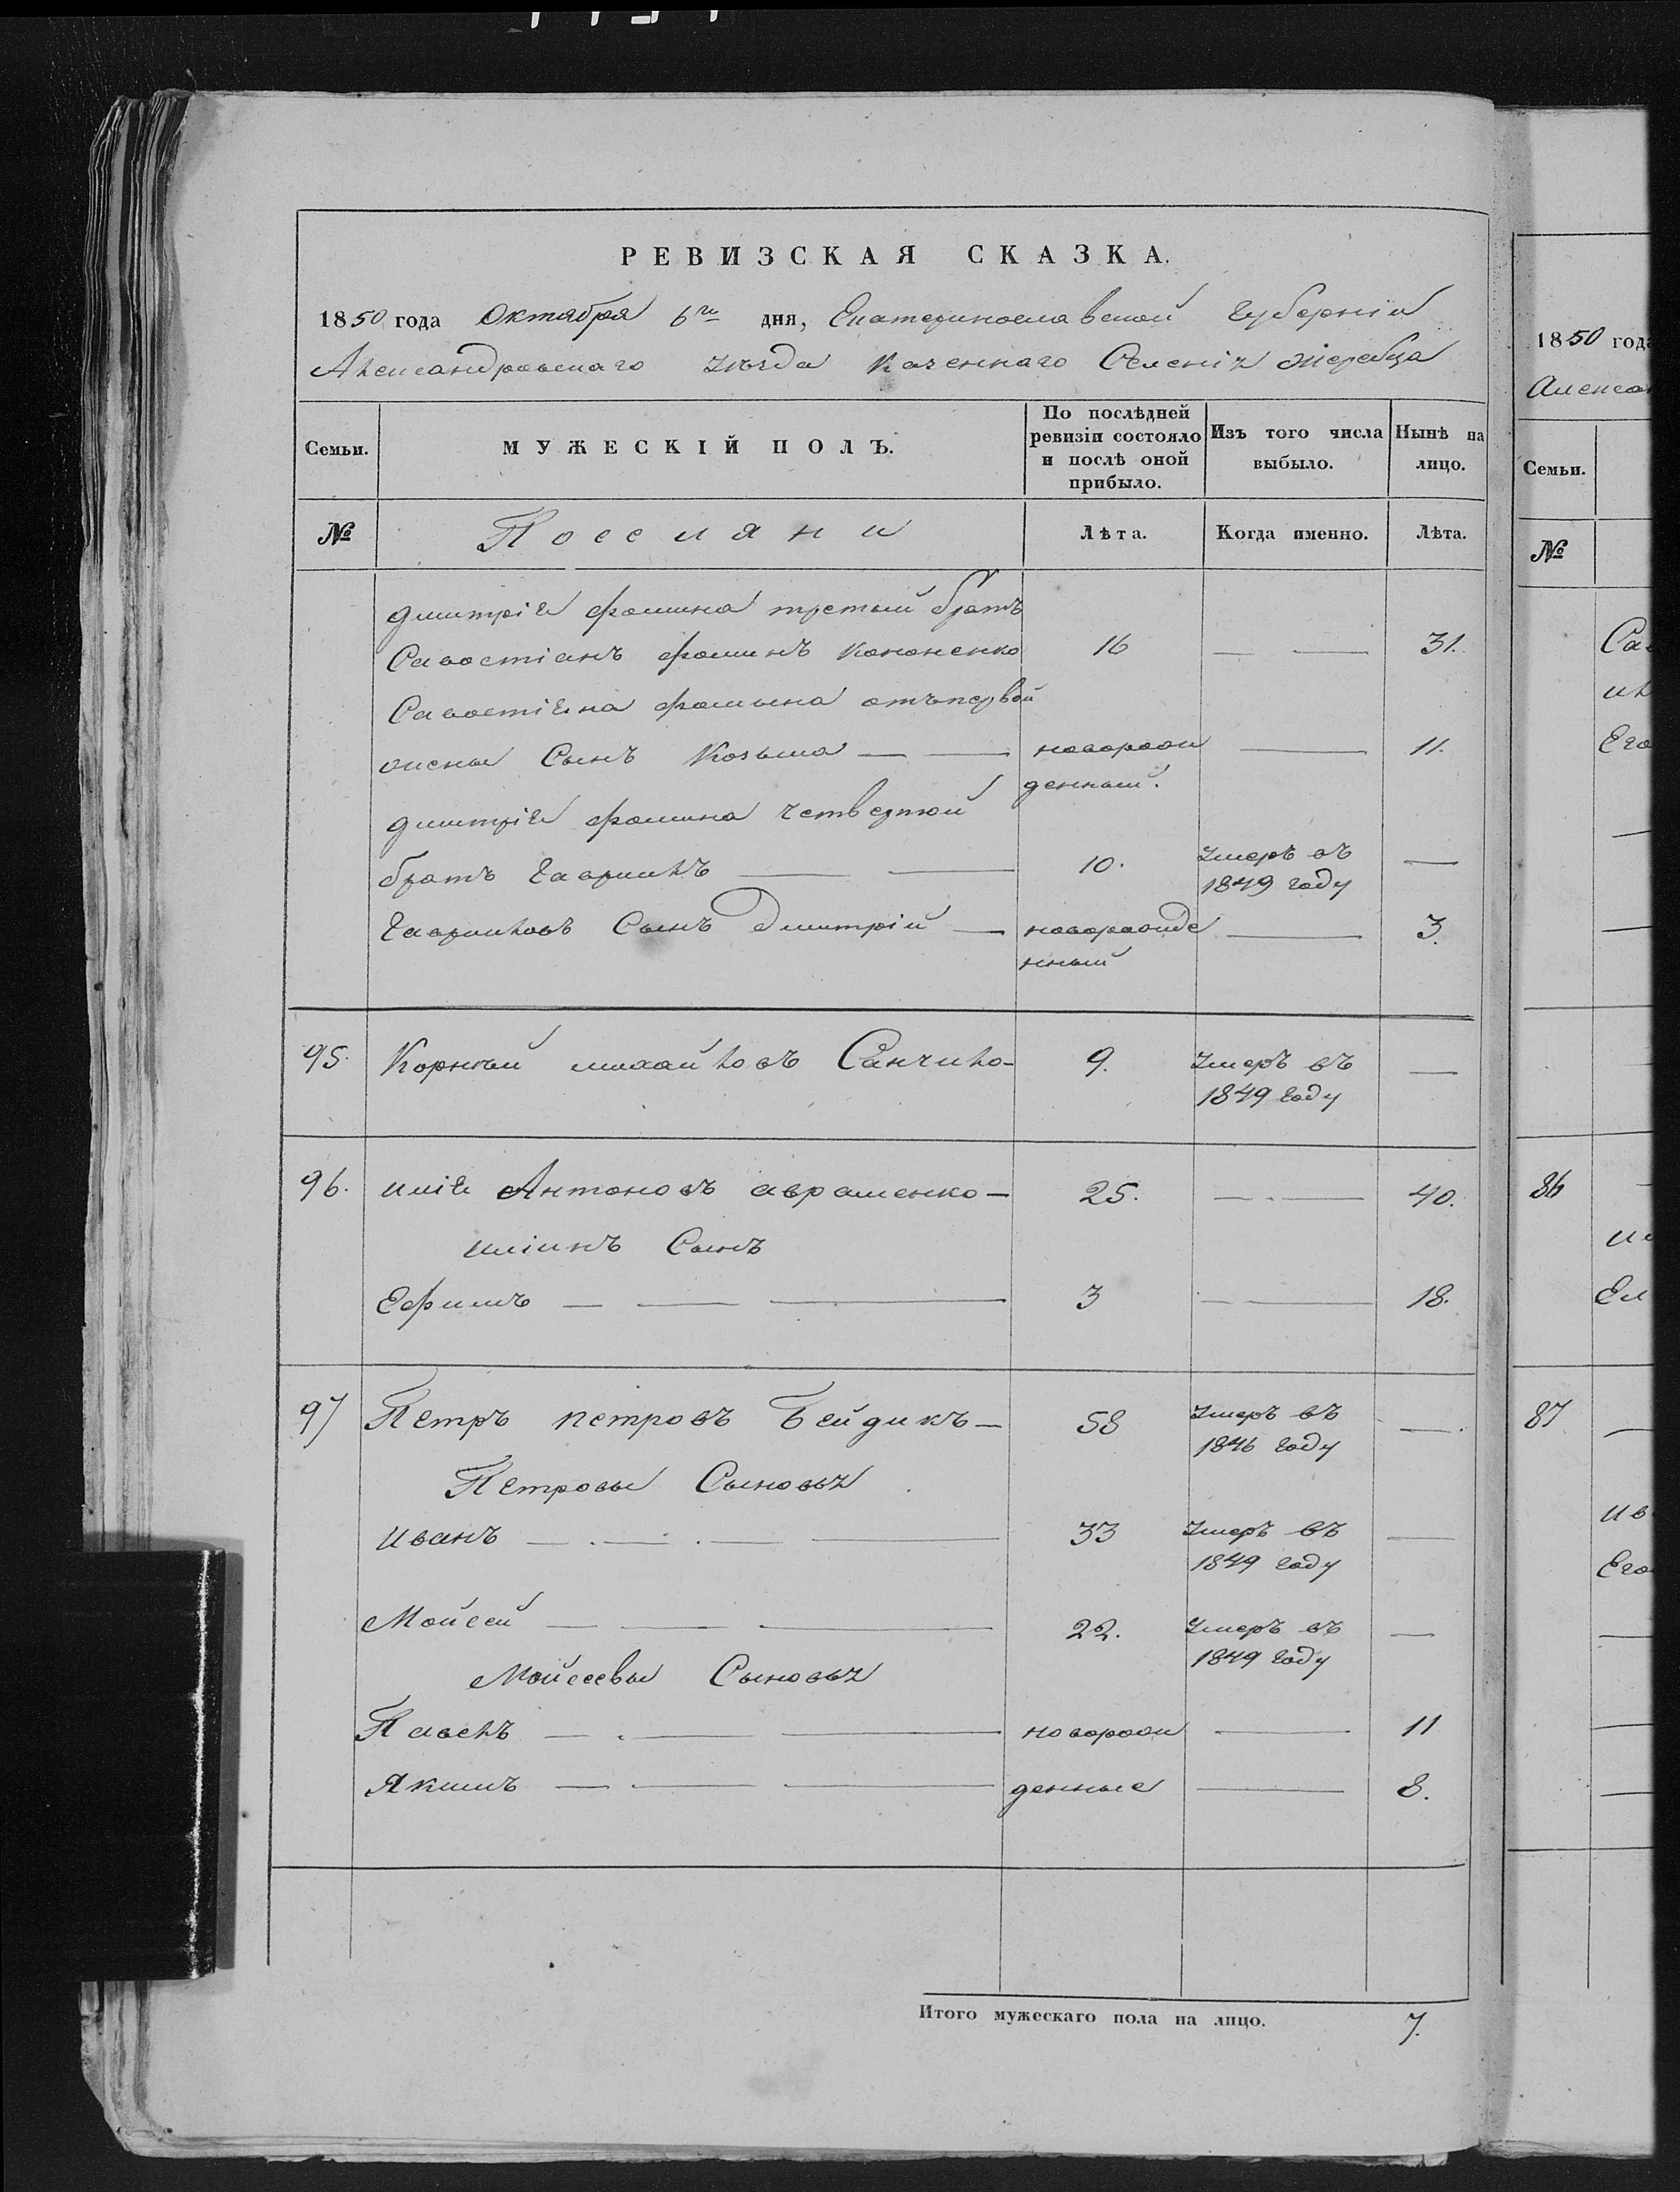 РЕВИЗСКАЯ СКАЗКА.
1850 года Октября 6го дня, Екатеринославской Губерніи
Александровскаго Уѣзда Казеннаго Селенія Жеребца
Семьи. МУЖЕСКІЙ ПОЛЪ. По послѣдней ревизіи состояло и послѣ оной прибыло. Изъ того числа выбыло. Нынѣ на лицо.
№ Поселяни Лѣта. Когда именно. Лѣта.
Дмитрія Фомина третьий братъ
Савостіанъ Фоминъ Кононенко 16 — — 31.
Савостіяна Фомына отъ первой
жены Сынъ Козьма — — новорож — 11.
денный.
Дмитрія Фомина четвертой
братъ Гаврилъ — — 10. Умеръ въ —
1849 году
Гавриловъ Сынъ Дмитрій — новорожде — 3.
нный
95. Корнѣй Михайловъ Санчило- 9. Умеръ въ —
1849 году
96. Илія Антоновъ Авраменко — 25. — — 40.
Иліинъ Сынъ
Ефимъ — — — 3 — — 18.
97 Петръ Петровъ Бейдикъ — 58 Умеръ въ —
1846 году
Петровы Сыновья
Иванъ — — — 33 Умеръ въ —
1849 году
Мойсей — — — 22. Умеръ въ —
1849 году
Мойсеевы Сыновья
Павелъ — — — новорож — 11
Якимъ — — — денные — 8.
Итого мужескаго пола на лицо. 7.
1850 года
Алексан
Семьи.
№
Сав
Его
86
Ел
87
Ив
Его